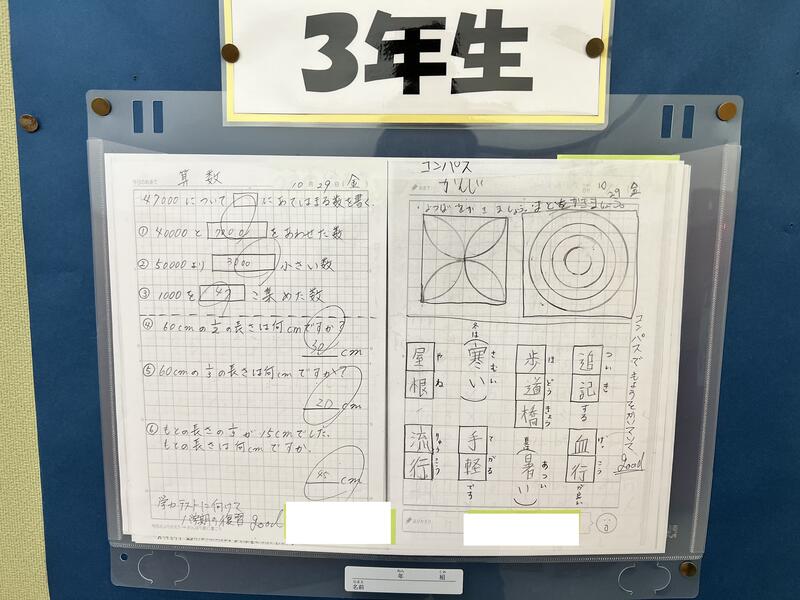 3年生
算数
10月29日(金)
47000について□にあてはまる数を書く。
① 40000と7000をあわせた数
② 50000より3000小さい数
③ 1000を47こ集めた数
④ 60cmの
の長さは何cmですか?
30cm
⑤ 60cmの
の長さは何cmですか?
20cm
⑥ もとの長さの
が15cmでした。
もとの長さは何cmですか。
45cm
学力テストに向けて
1学期の復習 good
コンパス
かんじ
10 29 金
コンパスでもようをかいていて good
追記する
ついき
歩道橋
ほどうきょう
寒い
さむい
冬は
屋根
やね
血行が良い
けっこう
暑い
あつい
夏は
手軽です
てがる
流行
りゅうこう
年 組
名前